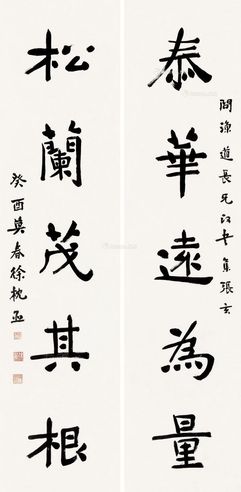 問漁道長兄法正 集張玄
泰華遠為量
松蘭茂其根
癸酉莫春徐枕亞